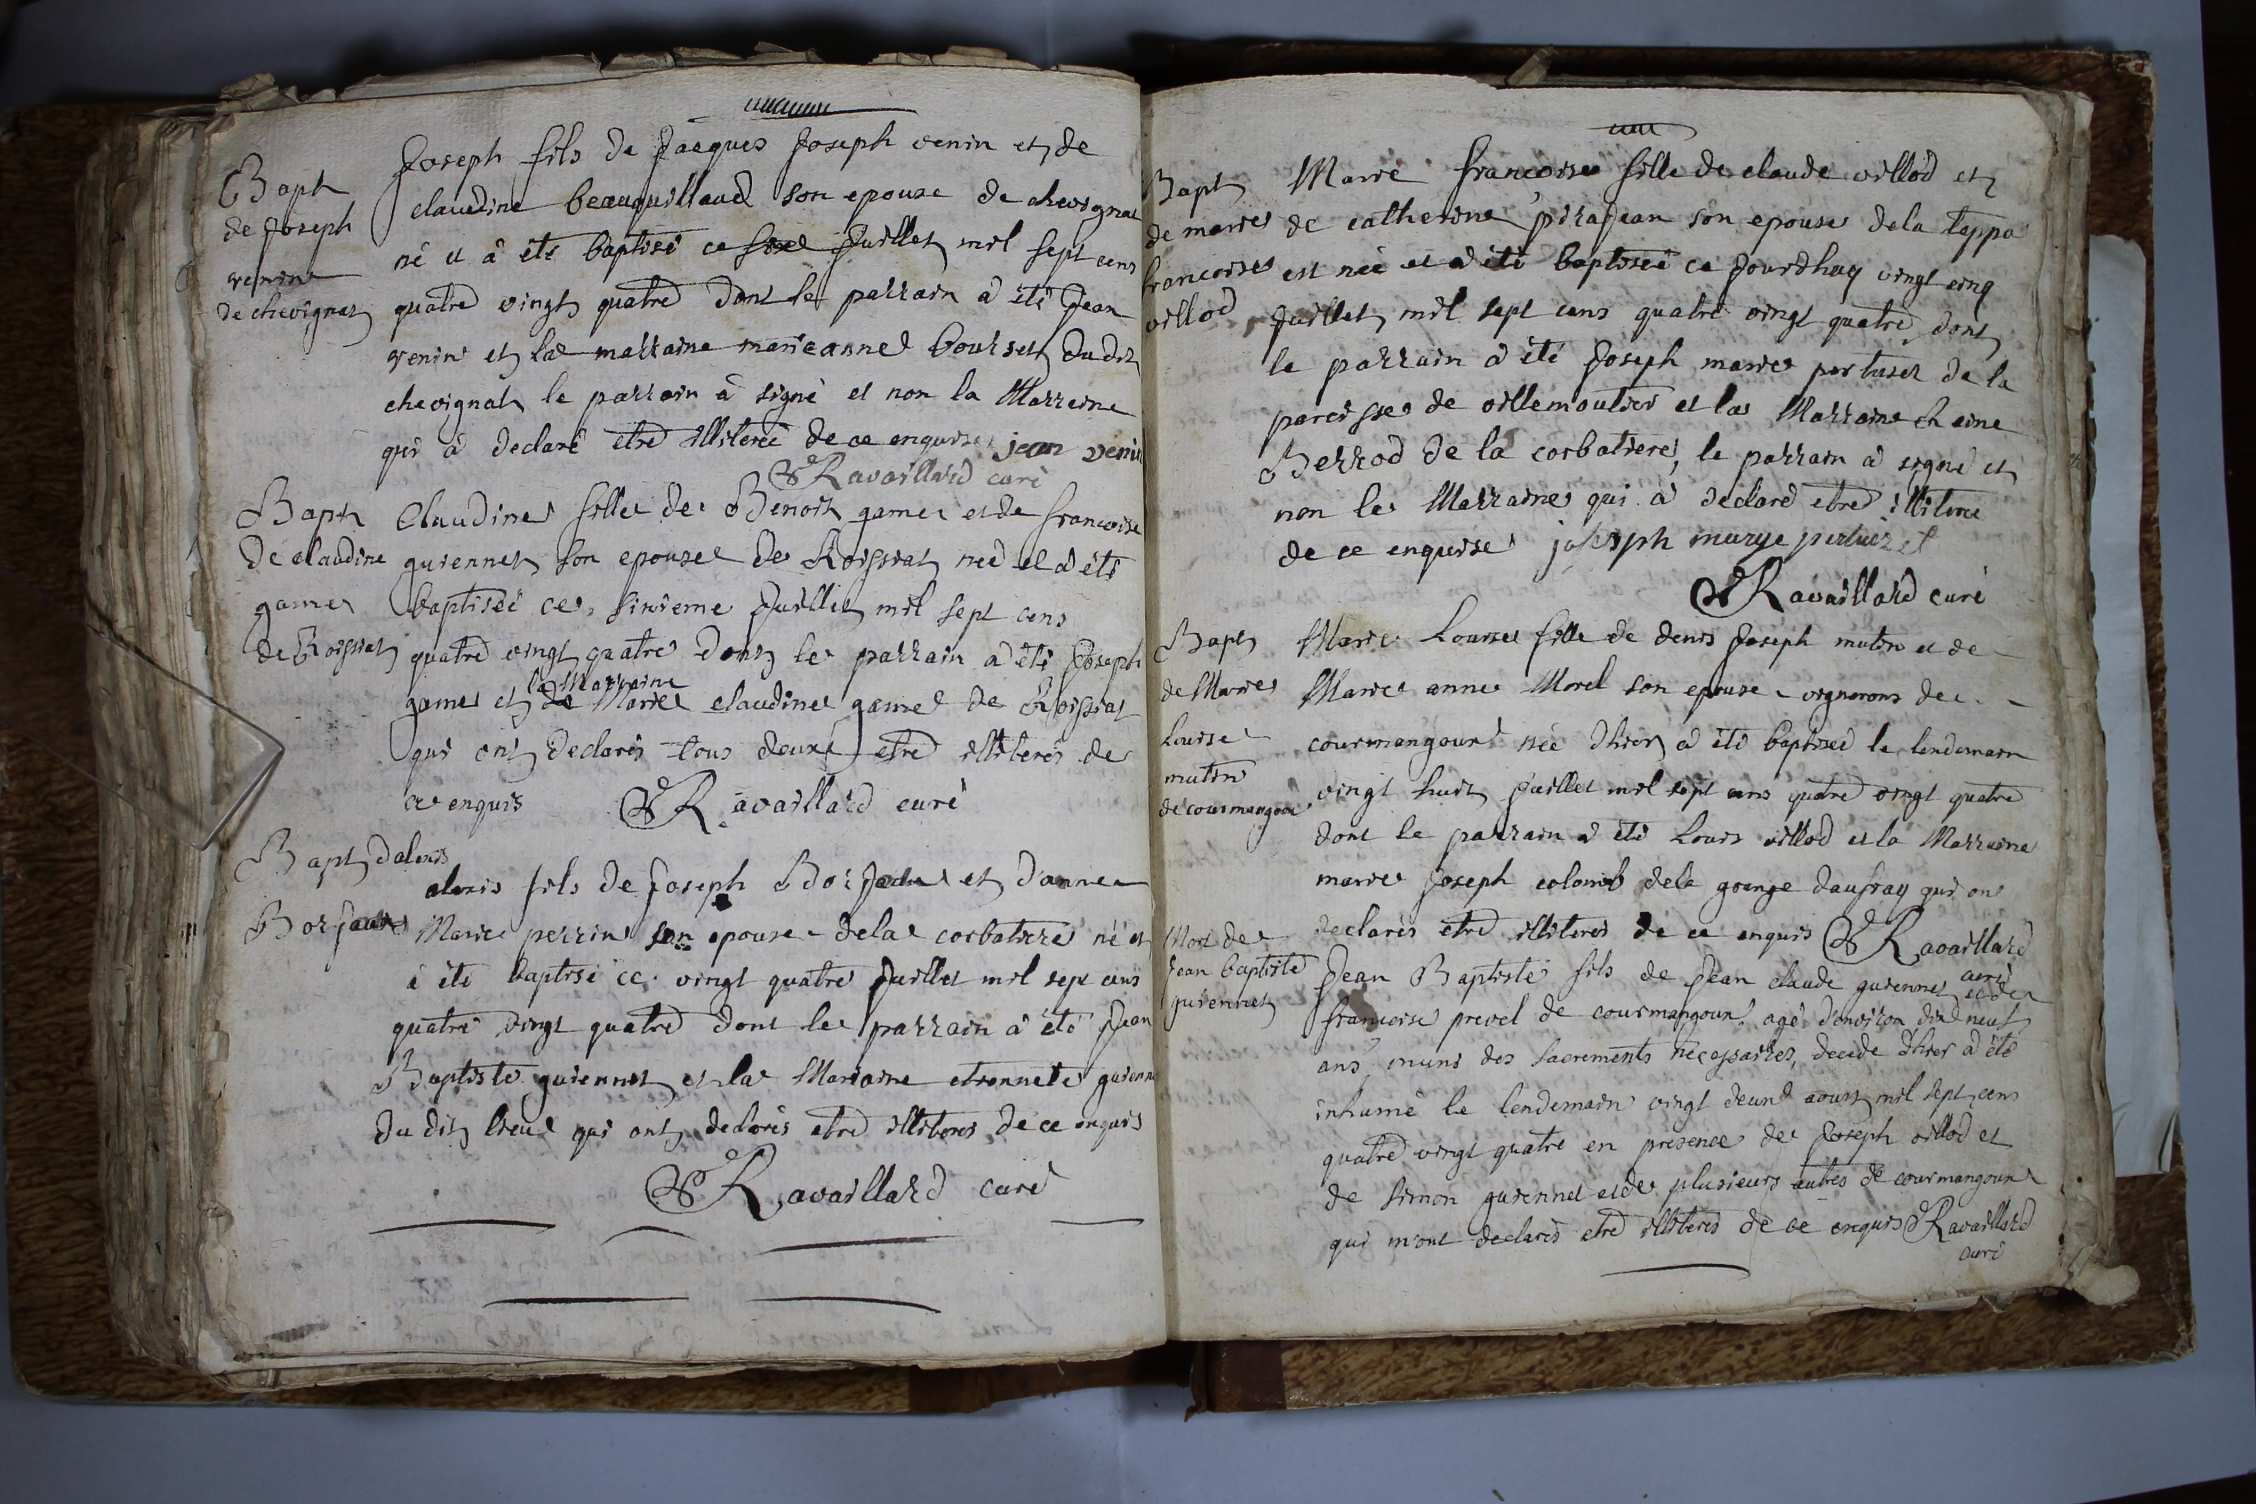 Bapt
de Joseph
venin
de chevignat
Joseph fils de Jacques Joseph venin et de
claudine beauquillaud son epouse de chevignat
né et à été baptisé ce six Juillet mil sept cens
quatre vingt quatre dont le parrain à été Jean
venin et la marraine marieanne bourset du dit
chevignat le parrain à signé et non la Marraine
qui à declaré etre illiterée de ce enquise jean venin
Ravaillard curé
Bapt
de claudine
game
de Roissiat
Claudine fille de Benoit game et de francoise
guiennet son epouse de Roissiat née et à été
baptisée ce sixieme Juillet mil sept cens
quatre vingt quatre dont le parrain à été Joseph
game et la Marraine Marie claudine game de Roissiat
qui ont declarés tous deux etre illiterés de
ce enquis Ravaillard curé
Bapt dalexis
Borjaud
alexis fils de Joseph Borjaud et d'anne
Marie perrin son epouse de la corbatiere né et
à été baptisé ce vingt quatre Juillet mil sept cens
quatre vingt quatre dont le parrain à été Jean
Baptiste guiennet et la Marraine etiennete guienne
du dit lieu qui ont declarés etre illiterés de ce enquis
Ravaillard curé
Bapt
de marie
francoise
villod
Marie francoise fille de claude villod et
de catherine pirajean son epouse de la teppa
est née et à été baptisée ce Jourdhuy vingt cinq
Juillet mil sept cens quatre vingt quatre dont
le parrain à été Joseph marie pertuset de la
paroisse de villemoutier et la Marraine
Berrod de la corbatiere, le parrain à signé et
non la Marraine qui à declaré etre illiterée
de ce enquise joseph marye pertuizet
Ravaillard curé
Bapt
de Marie
Louise
mutin
de courmangoux
Marie Louise fille de denis Joseph mutin et de
Marie anne Morel son epouse vignerons de
courmangoux née dhier à été baptisée le lendemain
vingt huit Juillet mil sept cens quatre vingt quatre
dont le parrain à été Louis villod et la Marraine
marie Joseph colomb de la grange daufray qui on
declarés etre illiterés de ce enquis Ravaillard
curé
Mort de
Jean baptiste
guiennet
Jean Baptiste fils de Jean claude guiennet et de
francoise prevel de courmangoux agé d'environ dix neuf
ans, muni des sacrements necessaires, decede dhier à été
inhumé le lendemain vingt deux aoust mil sept cens
quatre vingt quatre en presence de Joseph villod et
de simon guiennet et de plusieurs autres de courmangoux
qui m'ont declarés etre illiterés de ce enquis Ravaillard
curé